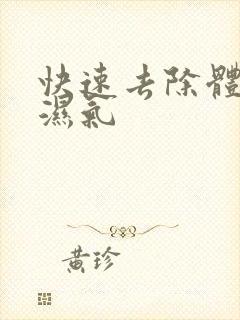 快速去除體
濕氣
黃珍